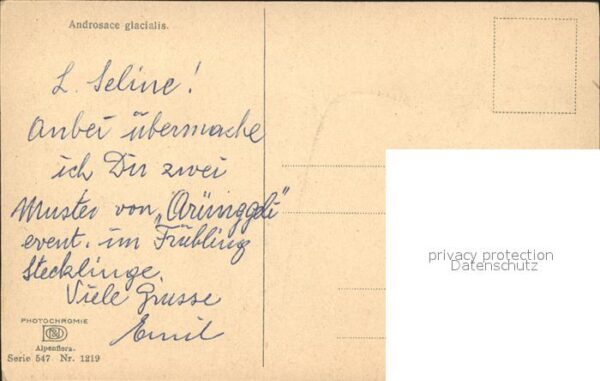 Androsace glacialis.
L. Seline!
Anbei übermache
ich Dir zwei
Muster von „Grünggeli"
event. im Frühling
Stecklinge.
Viele Grüsse
Emil
PHOTOCHROMIE
Alpenflora.
Serie 547 Nr. 1219
privacy protection
Datenschutz